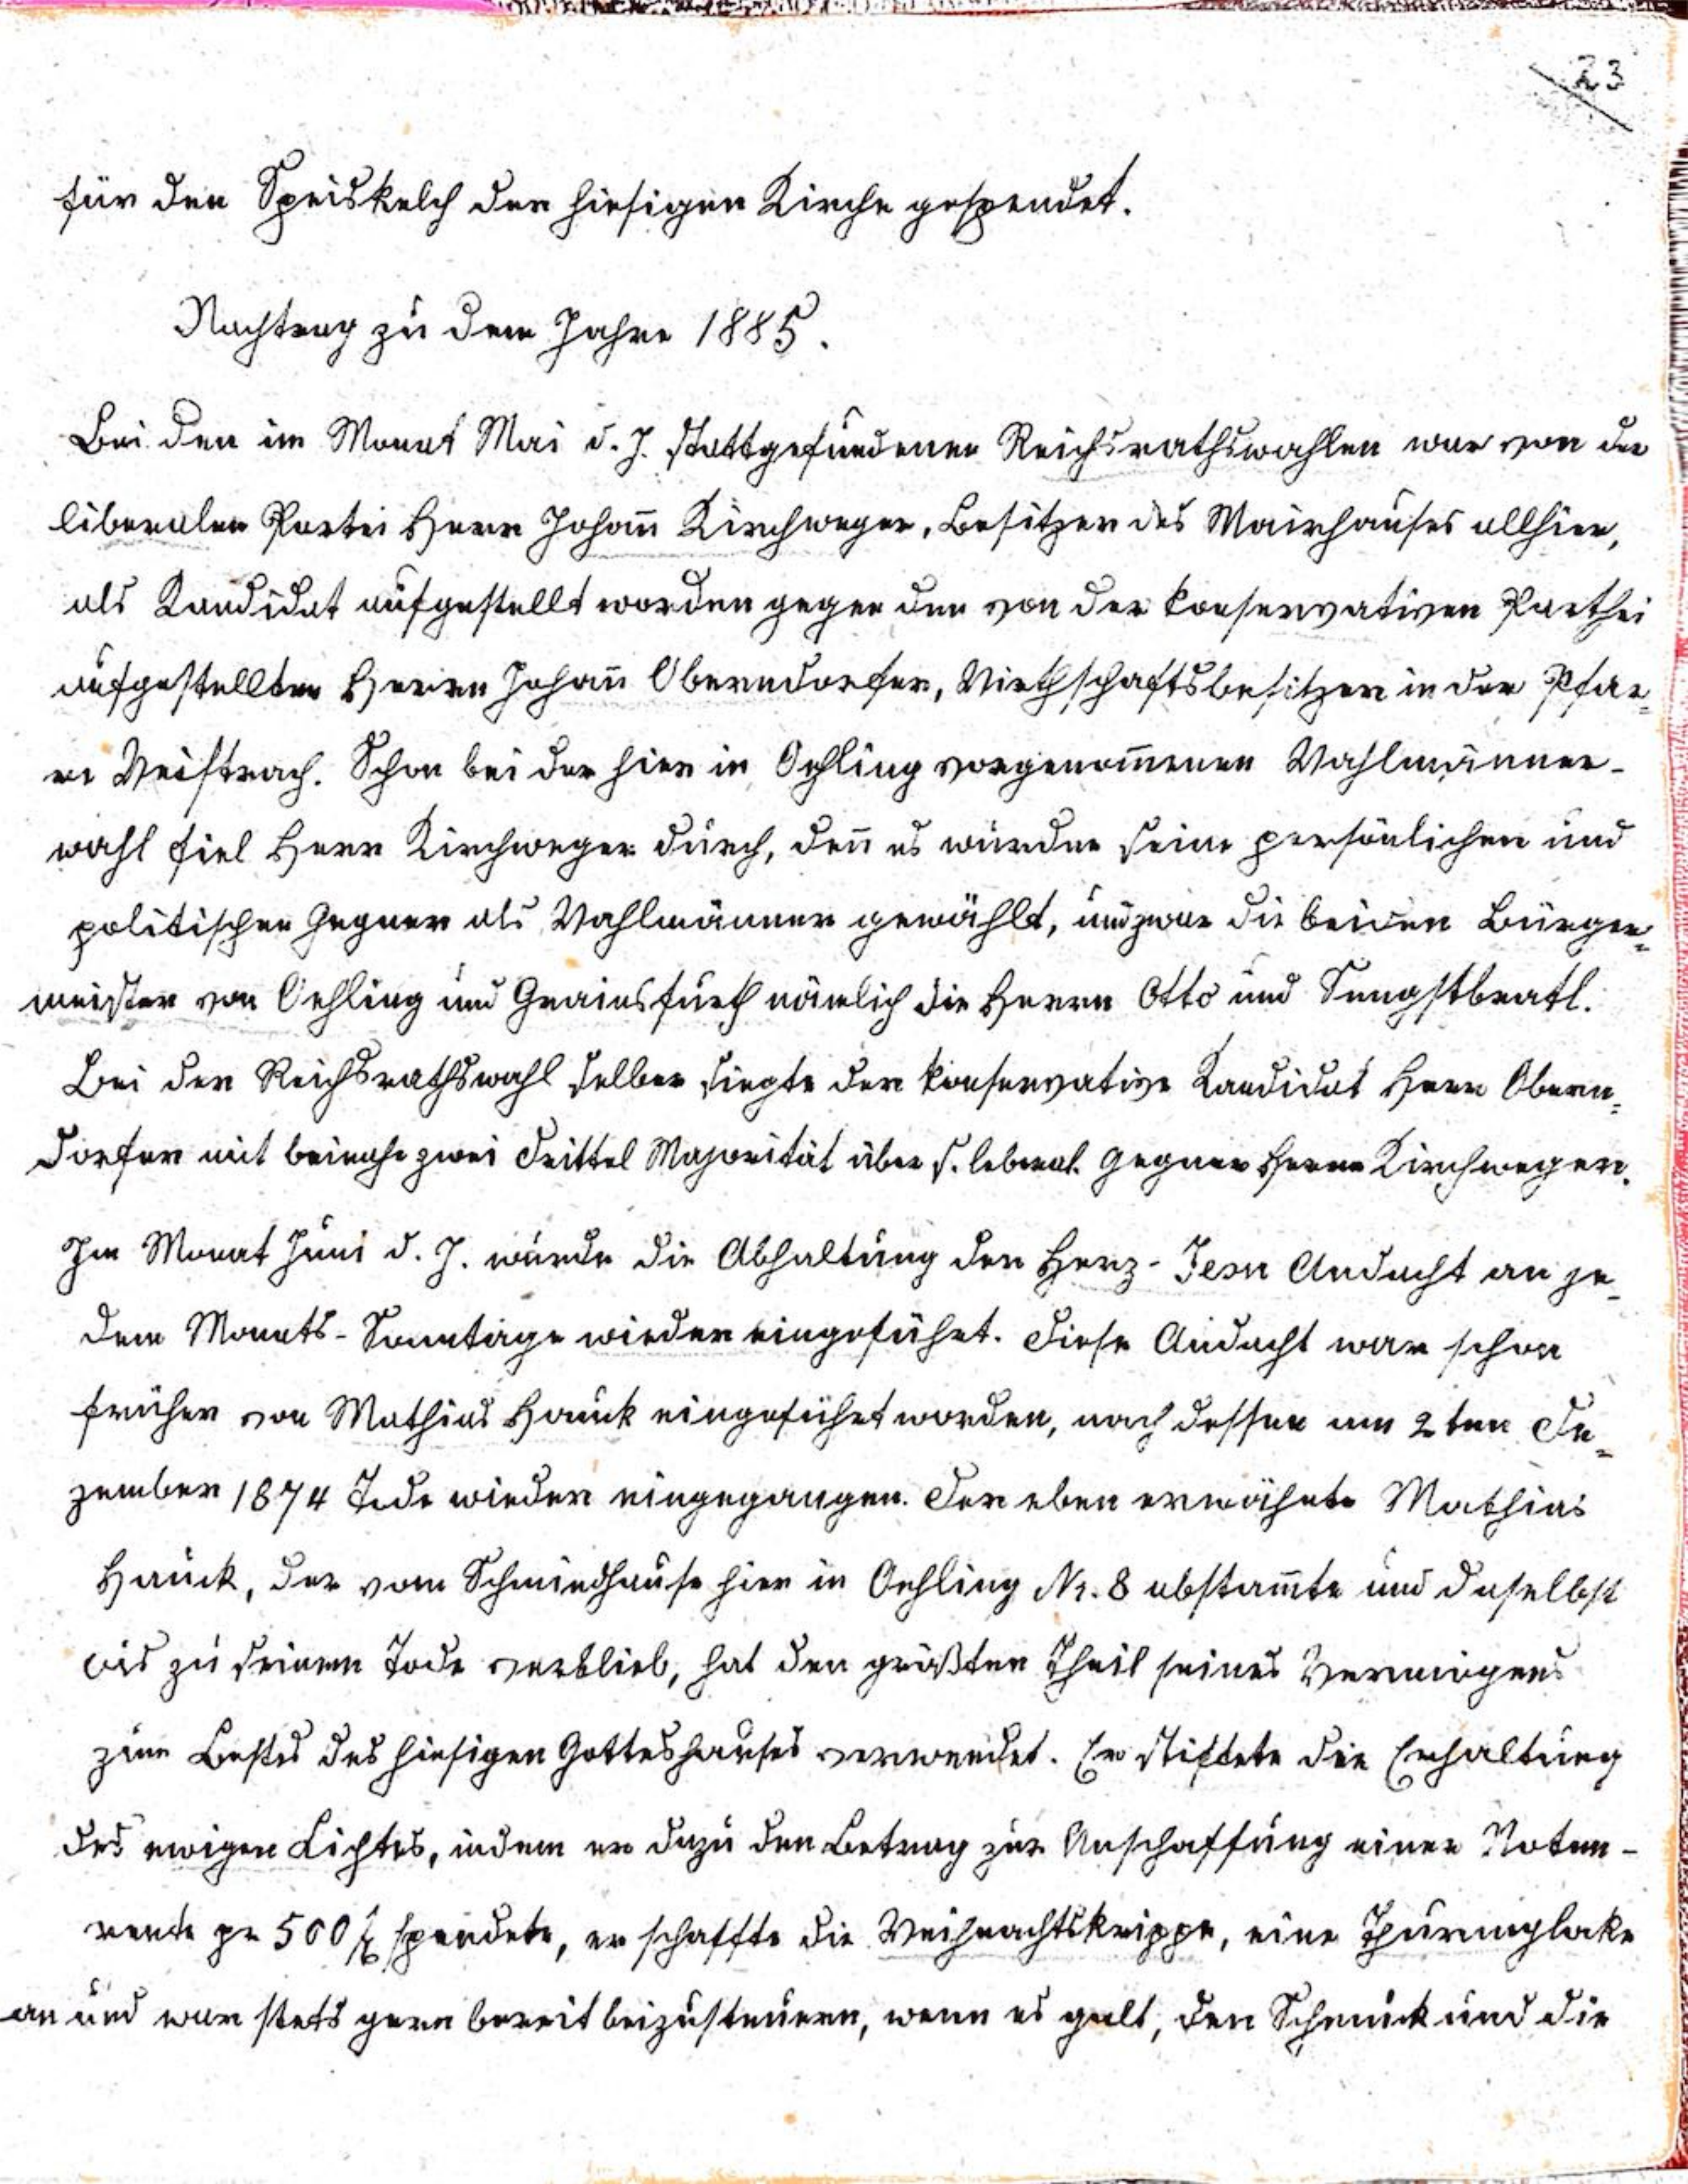 23
für den Speiskelch der hiesigen Kirche gespendet.
Nachtrag zu dem Jahre 1885.
Bei den im Monat Mai d. J. stattgefundenen Reichsrathswahlen war von der
liberalen Partei Herr Johann Kirchweger, Besitzer des Mairhauses allhier,
als Kandidat aufgestellt worden gegen den von der konservativen Parthei
aufgestellten Herrn Johann Oberndorfer, Wirthschaftsbesitzer in der Pfar=
re Weistrach. Schon bei der hier in Oehling vorgenommenen Wahlmänner-
wahl fiel Herr Kirchweger durch, denn es wurden seine persönlichen und
politischen Gegner als Wahlmänner gewählt, und zwar die beiden Bürger=
meister von Oehling und Grainsfurth nämlich die Herrn Otto und Sengstbratl.
Bei der Reichsrathswahl selber siegte der konservative Kandidat Herr Obern=
dorfer mit beinahe zwei Drittel Majorität über s. leberal. Gegner Herrn Kirchweger.
Im Monat Juni d. J. wurde die Abhaltung der Herz-Jesu Andacht an je=
dem Monats-Sonntage wieder eingeführt. Diese Andacht war schon
früher von Mathias Hauck eingeführt worden, nach dessen am 2ten De=
zember 1874 Tode wieder eingegangen. Der eben erwähnte Mathias
Hauck, der vom Schmiedhause hier in Oehling Nr. 8 abstammte und daselbst
bis zu seinem Tode verblieb, hat den größten Theil seines Vermögens
zum Bestes des hiesigen Gotteshauses verwendet. Er stiftete die Erhaltung
des ewigen Lichtes, indem er dazu den Betrag zur Anschaffung einer Noten-
rente pr 500 f spendete, er schaffte die Weihnachtskrippe, eine Thurmgloke
an und war stets gern bereit beizusteuern, wenn es galt, den Schmuck und die